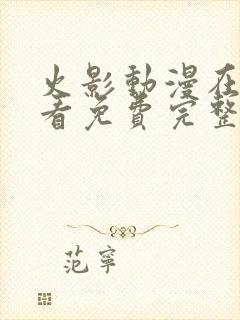 火影動漫在
看免費完整
范寧